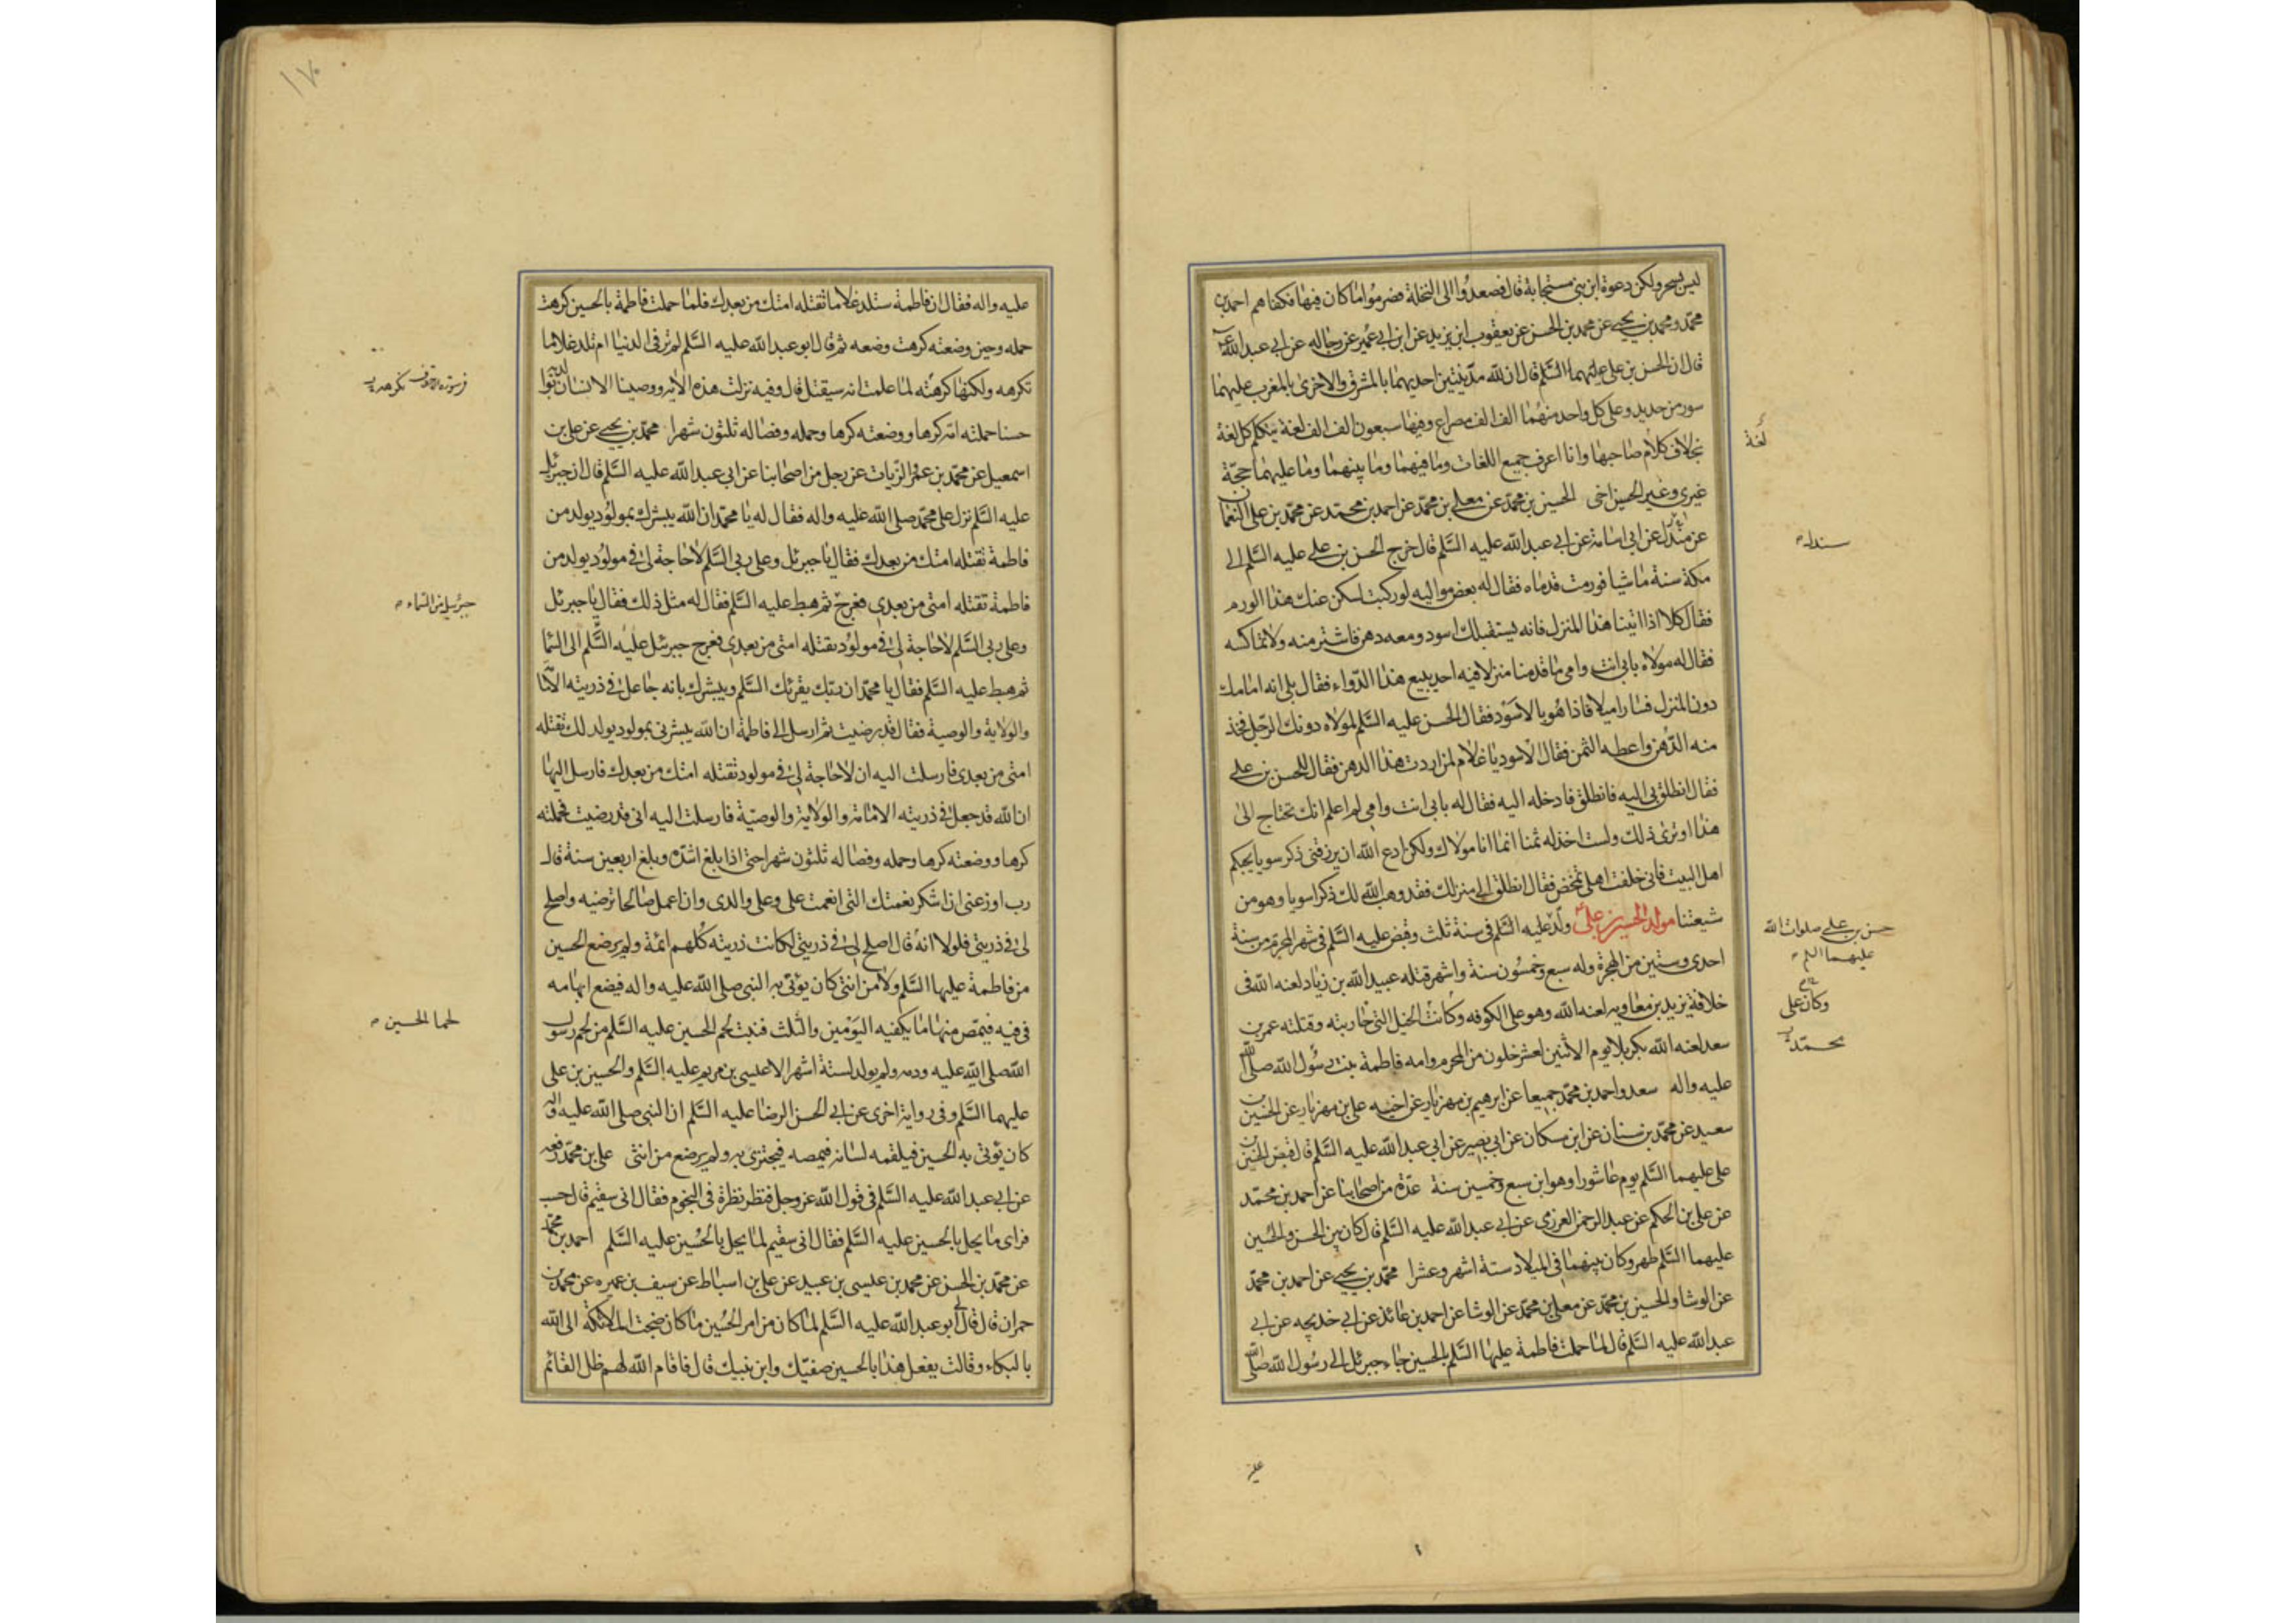 ليس بسحر ولكن دعوة ابن نبي مستجابة قال فصعدوا الى النخلة فصرموا ما كان فيها فكفاهم احمد بن
محمّد ومحمد بن يحيى عن محمد بن الحسن عن يعقوب ابن يزيد عن ابن ابي عمير عن رجاله عن ابي عبد الله ع
قال ان الحسن بن علي عليهما السَّلم قال ان لله مدينتين احديهما بالمشرق والاخرى بالمغرب عليهما
سور من حديد وعلى كل واحد منهما الف الف مصراع وفيها سبعون الف الف لغة يتكلم كل لغة
لغة
بخلاف كلام صاحبها وانا اعرف جميع اللغات وما فيهما وما بينهما وما عليهما حجة
غيري وغير الحسين اخي الحسين بن محمّد عن معلى بن محمّد عن احمد بن محمّد عن محمّد بن علي النعمان
عن مندل عن ابي اسامة عن ابي عبد الله عليه السَّلم قال خرج الحسن بن علي عليه السَّلم الى
مكة سنة ماشيا فورمت قدماه فقال له بعض مواليه لو ركبت لسكن عنك هذا الورم
فقال كلا اذا اتينا هذا المنزل فانه يستقبلك اسود ومعه دهن فاشتر منه ولا تماكسه
فقال له مولاه بابي انت وامي ما قدمنا منزلا فيه احد يبيع هذا الدّواء فقال بلى انه امامك
دون المنزل فسارا ميلا فاذا هو بالاسود فقال الحسن عليه السَّلم لمولاه دونك الرّجل فخذ
منه الدّهن واعطه الثمن فقال الاسود يا غلام لمن اردت هذا الدهن فقال للحسن بن علي
فقال انطلق بي اليه فانطلق فادخله اليه فقال له بابي انت وامي لم اعلم انك تحتاج الى
هذا او ترى ذلك ولست اخذ له ثمنا انما انا مولاك ولكن ادع الله ان يرزقني ذكر سويا يحبكم
اهل البيت فاني خلفت اهلي تمخض فقال انطلق الى منزلك فقد وهب الله لك ذكرا سويا وهو من
شيعتنا مولد الحسين بن علي ولد عليه السَّلم في سنة ثلث وقبض عليه السَّلم في شهر المحرم من سنة
حسن بن علي صلوات الله
عليهما
احدى وستين من الهجرة وله سبع وخمسون سنة واشهر قتله عبيد الله بن زياد لعنه الله في
خلافة يزيد بن معاويه لعنه الله وهو على الكوفه وكانت الخيل التي حاربته وقتلته عمر بن
وكان على
سعد لعنه الله بكربلا يوم الاثنين لعشر خلون من المحرم وامه فاطمة بنت رسول الله صلى الله
محمّد
عليه واله سعد واحمد بن محمّد جميعا عن ابرهيم بن مهزيار عن اخيه علي بن مهزيار عن الحسين بن
سعيد عن محمّد بن سنان عن ابن مسكان عن ابي بصير عن ابي عبد الله عليه السَّلم قال قبض الحسين بن
علي عليهما السَّلم يوم عاشورا وهو ابن سبع وخمسين سنة عدّة من اصحابنا عن احمد بن محمّد
عن علي بن الحكم عن عبد الرحمن العرزمي عن ابي عبد الله عليه السَّلم قال كان بين الحسن والحسين
عليهما السَّلم طهر وكان بينهما في الميلاد ستة اشهر وعشرا محمّد بن يحيى عن احمد بن محمّد
عن الوشا والحسين بن محمّد عن معلى بن محمّد عن الوشا عن احمد بن عائذ عن ابي خديجه عن ابي
عبد الله عليه السَّلم قال لما حملت فاطمة عليها السَّلم بالحسين جاء جبرئل الى رسول الله صلى الله
عليه
١٧٠
عليه واله فقال ان فاطمة ستلد غلاما تقتله امتك من بعدك فلما حملت فاطمة بالحسين كرهت
حمله وحين وضعته كرهت وضعه ثم قال ابو عبد الله عليه السَّلم لم تر في الدنيا ام تلد غلاما
تكرهه ولكنها كرهته لما علمت انه سيقتل قال وفيه نزلت هذه الايه ووصينا الانسان بوالديه
حسنا حملته امه كرها ووضعته كرها وحمله وفصاله ثلثون شهرا محمّد بن يحيى عن علي بن
اسمعيل عن محمّد بن عمرو الزيات عن رجل من اصحابنا عن ابي عبد الله عليه السَّلم قال ان جبرئل
عليه السَّلم نزل على محمّد صلى الله عليه واله فقال له يا محمّد ان الله يبشرك بمولود يولد من
فاطمة تقتله امتك من بعدك فقال يا جبرئل وعلى ربي السَّلم لا حاجة لي في مولود يولد من
فاطمة تقتله امتي من بعدي فعرج ثم هبط عليه السَّلم فقال له مثل ذلك فقال يا جبرئل
جبرئيل الى السماء
وعلى ربي السَّلم لا حاجة لي في مولود تقتله امتي من بعدي فعرج جبرئل عليه السَّلم الى السما
ثم هبط عليه السَّلم فقال يا محمّد ان ربك يقرئك السَّلم ويبشرك بانه جاعل في ذريته الامامة
والولاية والوصية فقال قد رضيت ثم ارسل الى فاطمة ان الله يبشرني بمولود يولد لك تقتله
امتي من بعدي فارسلت اليه ان لا حاجة لي في مولود تقتله امتك من بعدك فارسل اليها
ان الله قد جعل في ذريته الامامة والولاية والوصيّة فارسلت اليه اني قد رضيت فحملته
كرها ووضعته كرها وحمله وفصاله ثلثون شهرا حتى اذا بلغ اشدّه وبلغ اربعين سنة قال
رب اوزعني ان اشكر نعمتك التي انعمت علي وعلى والدي وان اعمل صالحا ترضيه واصلح
لي في ذريتي فلولا انه قال اصلح لي في ذريتي لكانت ذريته كلهم ائمة ولم يرضع الحسين
من فاطمة عليها السَّلم ولا من انثى كان يؤتى به النبي صلى الله عليه واله فيضع ابهامه
في فيه فيمص منها ما يكفيه اليومين والثلث فنبت لحم الحسين عليه السَّلم من لحم رسول
لحما للحسين
الله صلى الله عليه ودمه ولم يولد لستة اشهر الا عيسى بن مريم عليه السَّلم والحسين بن علي
عليهما السَّلم وفي رواية اخرى عن ابي الحسن الرضا عليه السَّلم ان النبي صلى الله عليه واله
كان يؤتى به الحسين فيلقمه لسانه فيمصه فيجتزئ به ولم يرضع من انثى علي بن محمّد رفعه
عن ابي عبد الله عليه السَّلم في قول الله عز وجل فنظر نظرة في النجوم فقال اني سقيم قال حسب
فراى ما يحل بالحسين عليه السَّلم فقال اني سقيم لما يحل بالحسين عليه السَّلم احمد بن محمّد
عن محمّد بن الحسن عن محمد بن عيسى بن عبيد عن علي بن اسباط عن سيف بن عميره عن محمّد بن
حمران قال قال ابو عبد الله عليه السَّلم لما كان من امر الحسين ما كان ضجت الملائكة الى الله
بالبكاء وقالت يفعل هذا بالحسين صفيّك وابن نبيك قال فاقام الله لهم ظل القائم